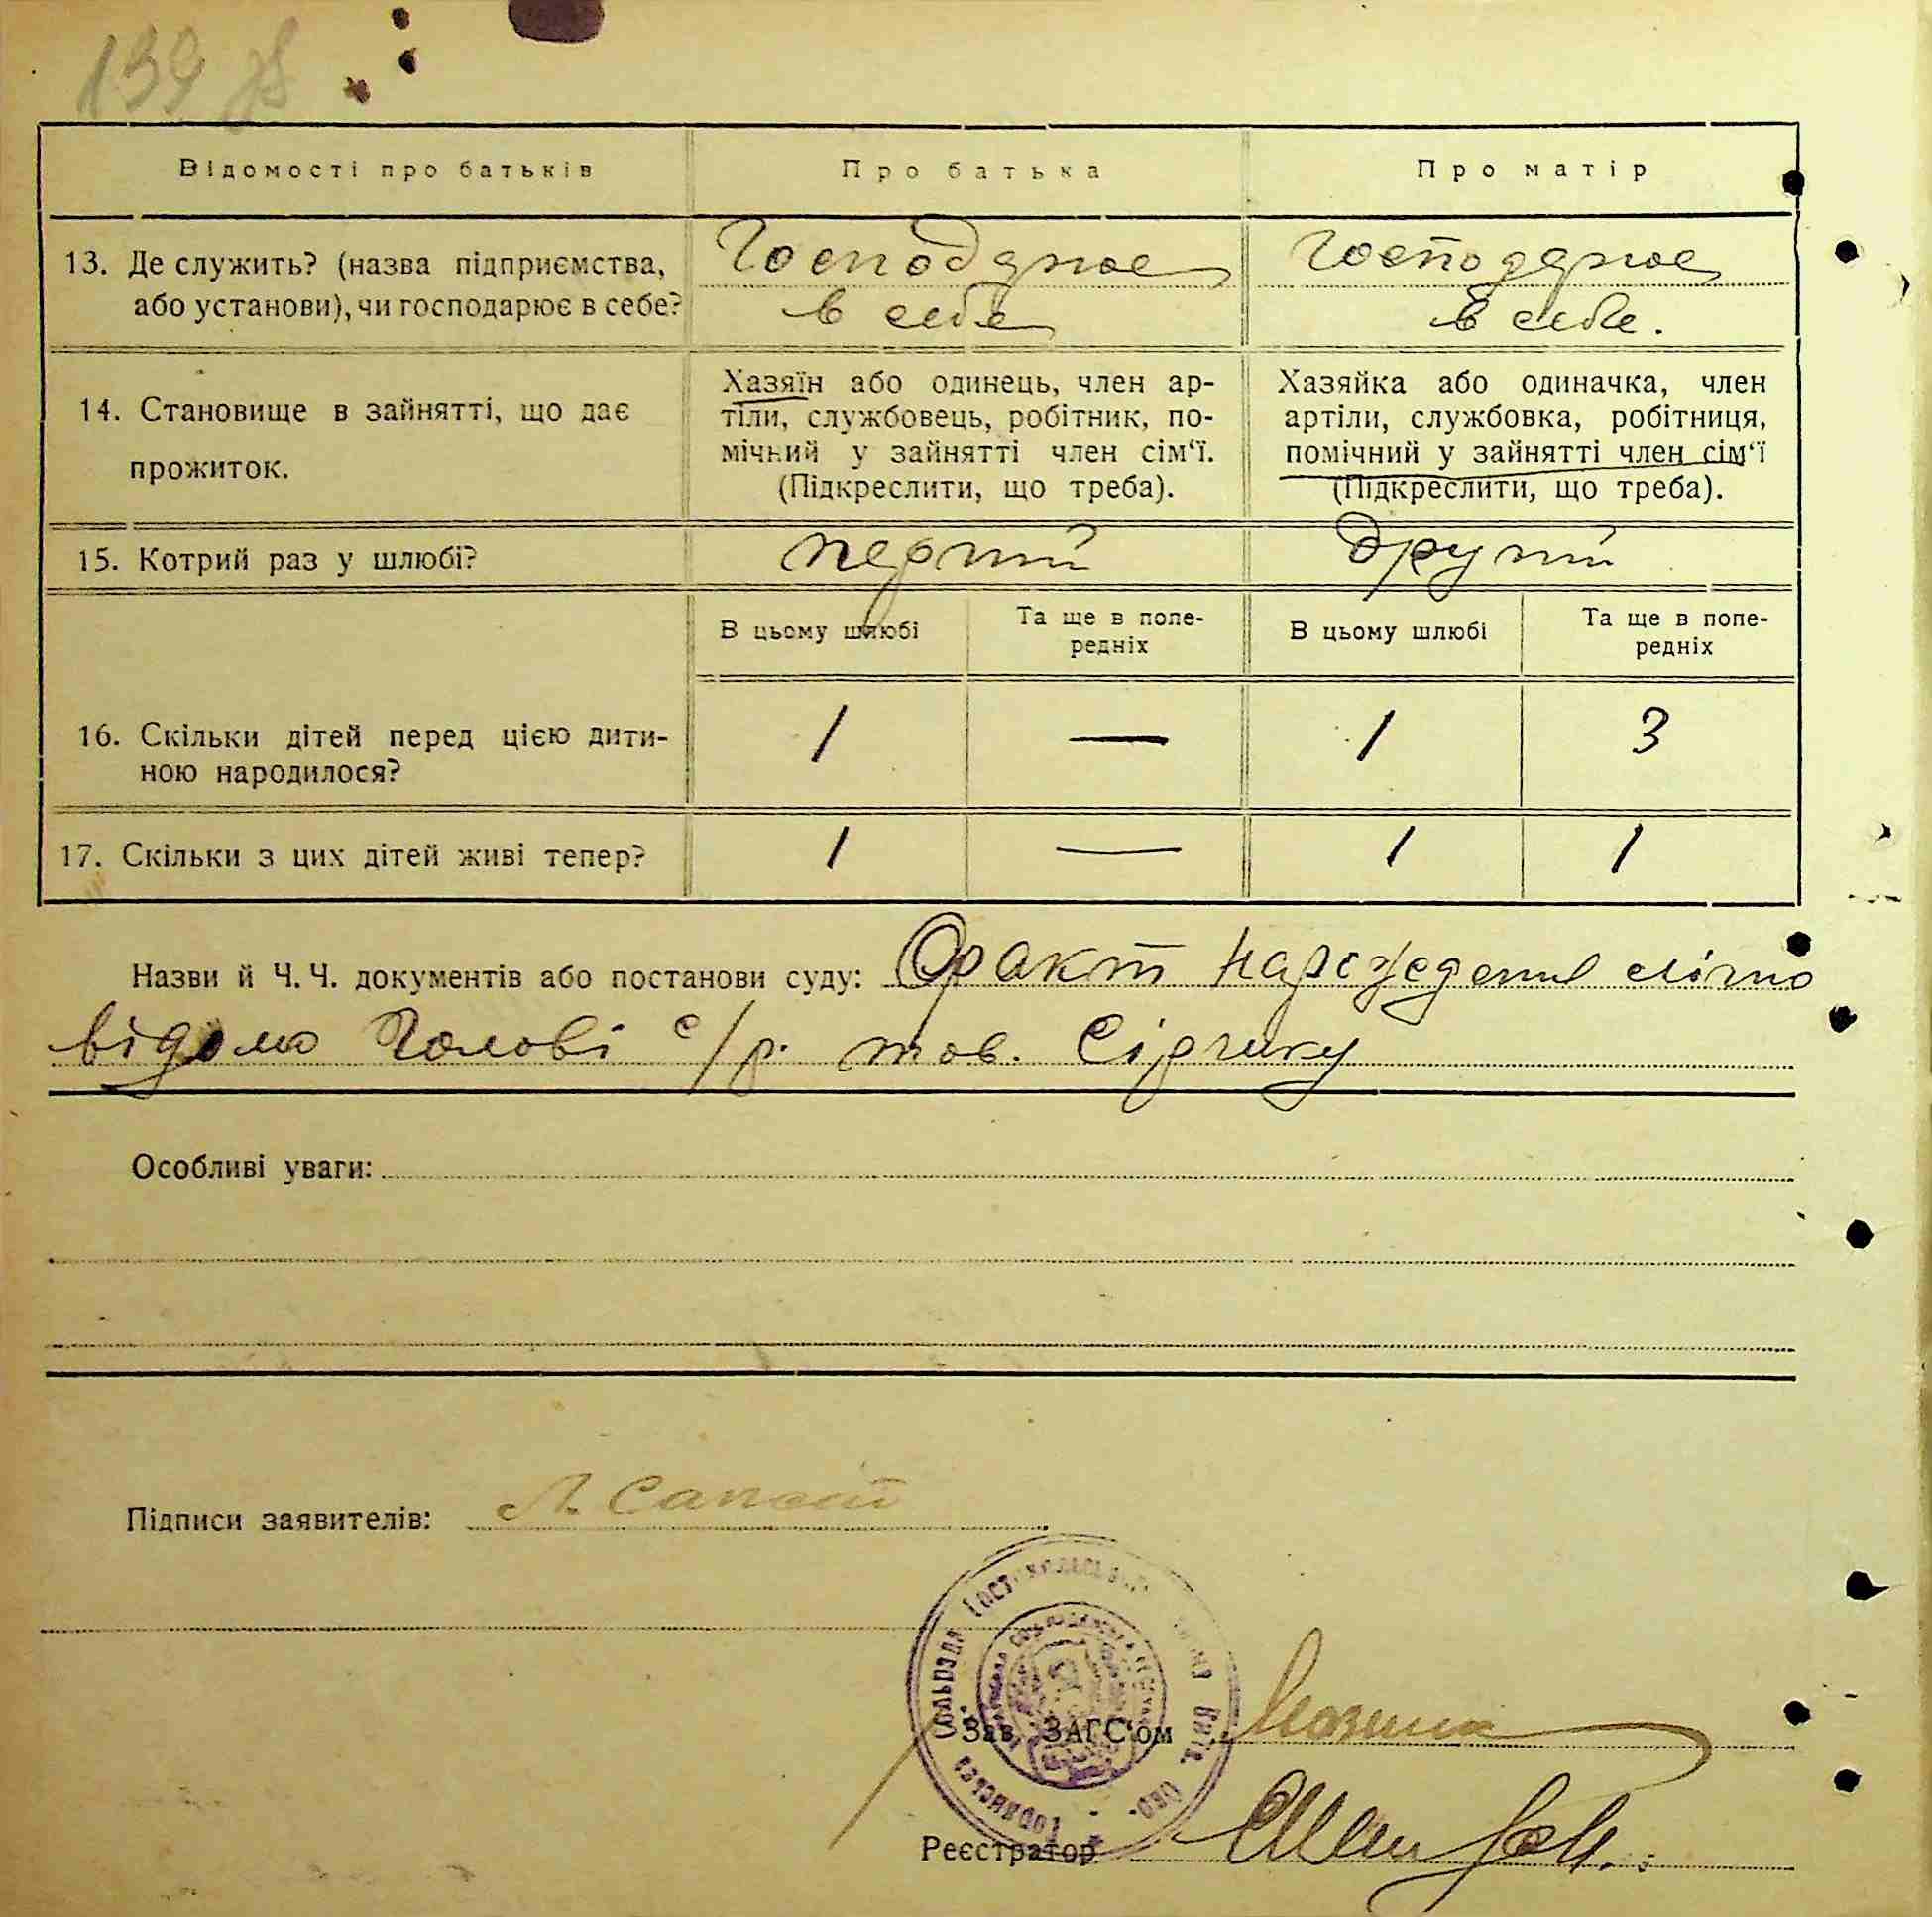 139 зв
Відомості про батьків
Про батька
Про матір
13. Де служить? (назва підприємства,
або установи), чи господарює в себе?
Господарює
в себе
Господарює
в себе.
14. Становище в зайнятті, що дає
прожиток.
Хазяїн або одинець, член ар-
тіли, службовець, робітник, по-
мічний у зайнятті член сім‘ї.
(Підкреслити, що треба).
Хазяйка або одиначка, член
артіли, службовка, робітниця,
помічний у зайнятті член сім‘ї
(Підкреслити, що треба).
15. Котрий раз у шлюбі?
перший
другий
В цьому шлюбі
Та ще в попе-
редніх
В цьому шлюбі
Та ще в попе-
редніх
16. Скільки дітей перед цією дити-
ною народилося?
1 — 1 3
17. Скільки з цих дітей живі тепер?
1 — 1 1
Назви й Ч. Ч. документів або постанови суду: Факт народження
відомо Голові с/р. тов. Сірчику
Особливі уваги:
Підписи заявителів:
Зав. ЗАГС‘ом
Реєстратор